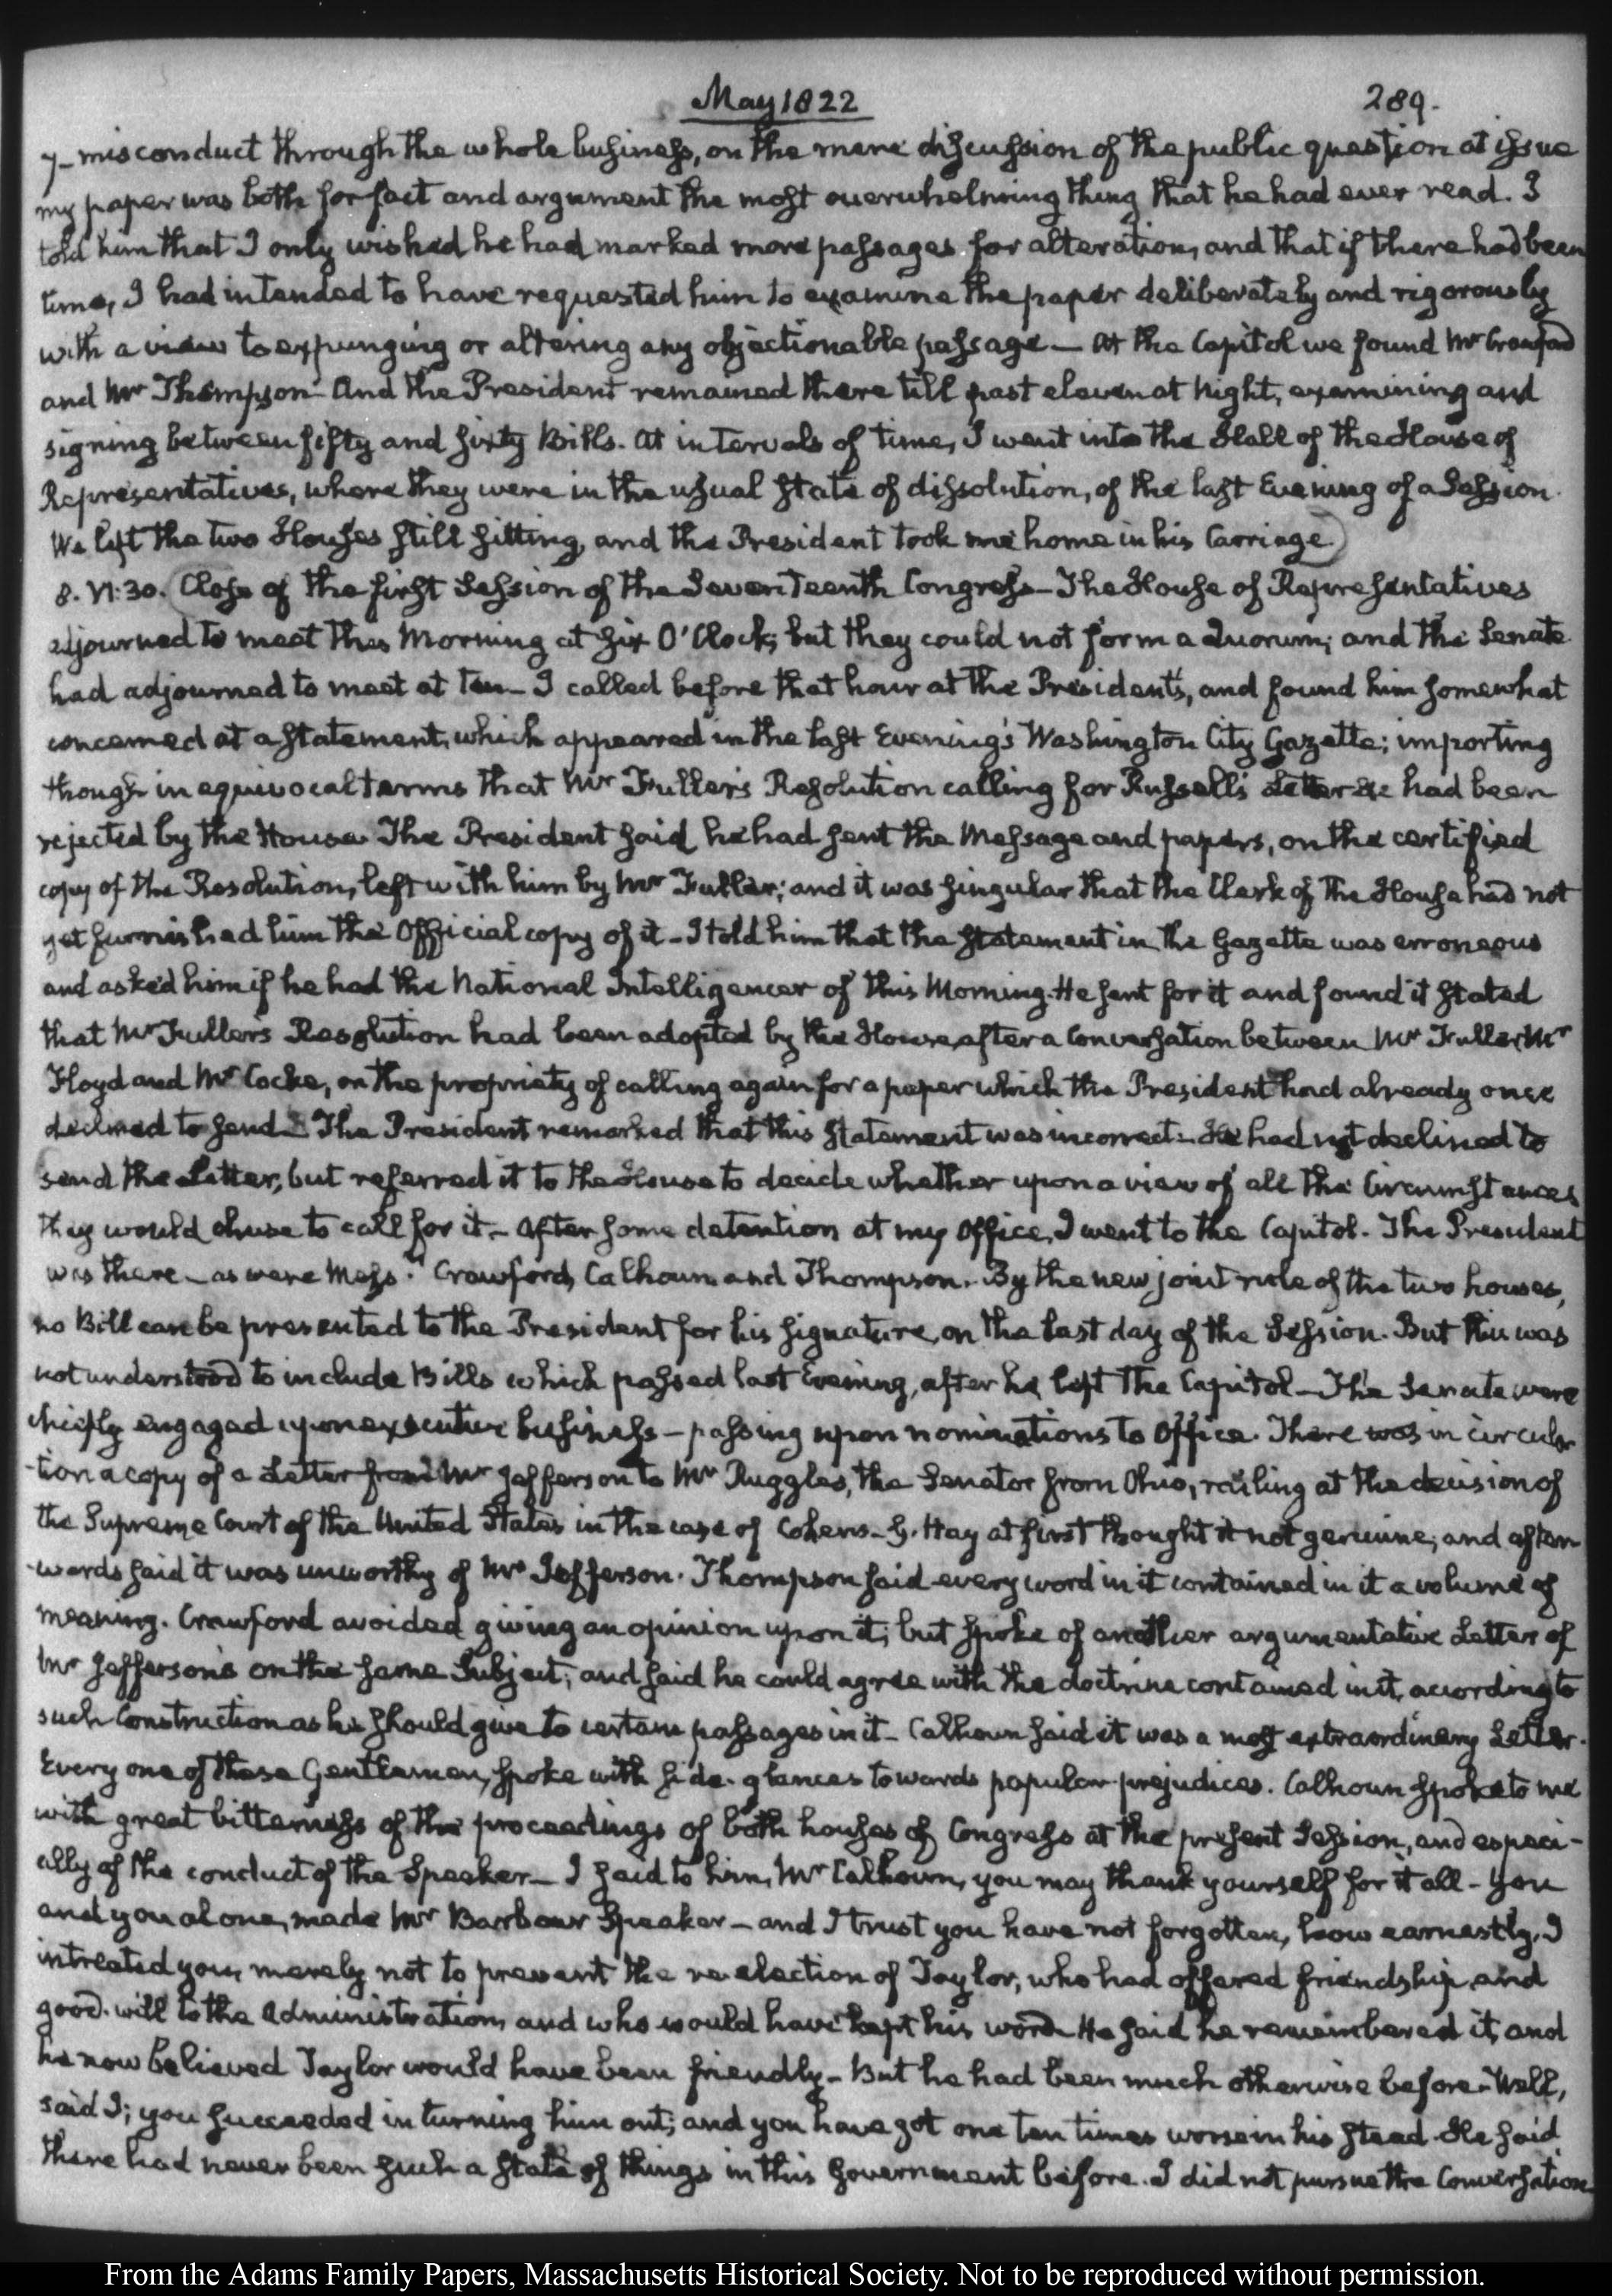 May 1822
289.
7— misconduct through the whole business, on the mere discussion of the public question at issue
my paper was both for fact and argument the most overwhelming thing that he had ever read. I
told him that I only wished he had marked more passages for alteration, and that if there had been
time, I had intended to have requested him to examine the paper deliberately and rigorously
with a view to expunging or altering any objectionable passage— At the Capitol we found Mr Crawford
and Mr Thompson— And the President remained there till past eleven at Night, examining and
signing between fifty and sixty Bills. At intervals of time, I went into the Hall of the House of
Representatives, where they were in the usual state of dissolution, of the last Evening of a Session.
We left the two Houses still sitting, and the President took me home in his Carriage.
8. VI:30. Close of the first Session of the Seventeenth Congress— The House of Representatives
adjourned to meet this Morning at six O'Clock; but they could not form a Quorum; and the Senate
had adjourned to meet at ten— I called before that hour at the President's, and found him somewhat
concerned at a statement, which appeared in the last Evening's Washington City Gazette; importing
though in equivocal terms that Mr Fuller's Resolution calling for Russell's Letter &c had been
rejected by the House. The President said he had sent the Message and papers, on the certified
copy of the Resolution, left with him by Mr Fuller; and it was singular that the Clerk of the House had not
yet furnished him the Official copy of it— I told him that the statement in the Gazette was erroneous
and asked him if he had the National Intelligencer of this Morning. He sent for it and found it stated
that Mr Fullers Resolution had been adopted by the House, after a Conversation between Mr Fuller, Mr
Floyd and Mr Cocke, on the propriety of calling again for a paper which the President had already once
declined to send— The President remarked that this statement was incorrect— He had not declined to
send the Letter, but referred it to the House to decide whether upon a view of all the Circumstances
they would chuse to call for it— After some detention at my Office, I went to the Capitol. The President
was there— as were Messrs. Crawford, Calhoun and Thompson. By the new joint rule of the two houses,
no Bill can be presented to the President for his signature, on the last day of the Session. But this was
not understood to include Bills which passed last Evening, after he left the Capitol— The Senate were
chiefly engaged upon executive business— passing upon nominations to Office. There was in circula-
-tion a copy of a Letter from Mr Jefferson to Mr Ruggles, the Senator from Ohio, railing at the decision of
the Supreme Court of the United States in the case of Cohens— G. Hay at first thought it not genuine; and after-
-wards said it was unworthy of Mr Jefferson. Thompson said every word in it contained in it a volume of
meaning. Crawford avoided giving an opinion upon it; but spoke of another argumentative Letter of
Mr Jefferson's on the same Subject; and said he could agree with the doctrine contained in it, according to
such Construction as he should give to certain passages in it— Calhoun said it was a most extraordinary Letter.
Every one of these Gentlemen, spoke with side-glances towards popular prejudices. Calhoun spoke to me
with great bitterness of the proceedings of both houses of Congress at the present Session, and especi-
ally of the conduct of the Speaker— I said to him, Mr Calhoun, you may thank yourself for it all— You
and you alone, made Mr Barbour Speaker— and I trust you have not forgotten, how earnestly, I
intreated you, merely not to prevent the re-election of Taylor, who had offered friendship and
good-will to the Administration, and who would have kept his word. He said he remembered it, and
he now believed Taylor would have been friendly— But he had been much otherwise before— Well,
said I; you succeeded in turning him out; and you have got one ten times worse in his stead. He said
there had never been such a state of things in this Government before. I did not pursue the Conversation
From the Adams Family Papers, Massachusetts Historical Society. Not to be reproduced without permission.